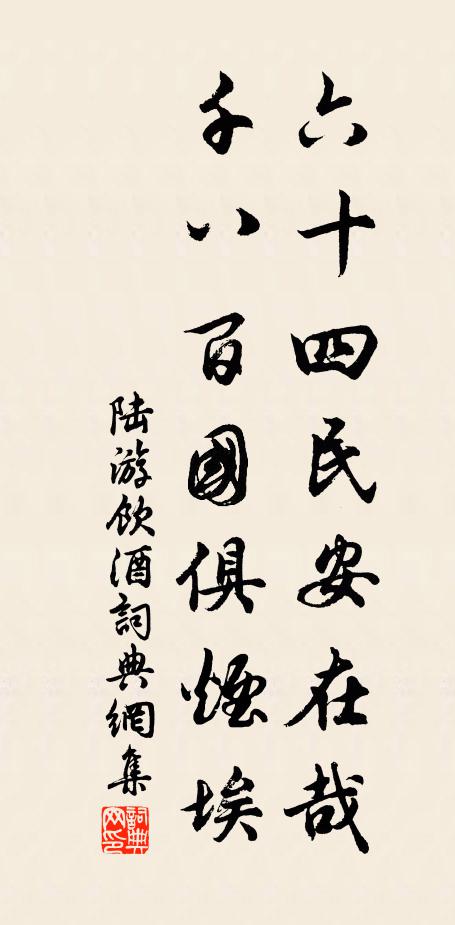 六十四民安在哉
千八百國俱煙埃
陆游飲酒詞典網集
詞典網印